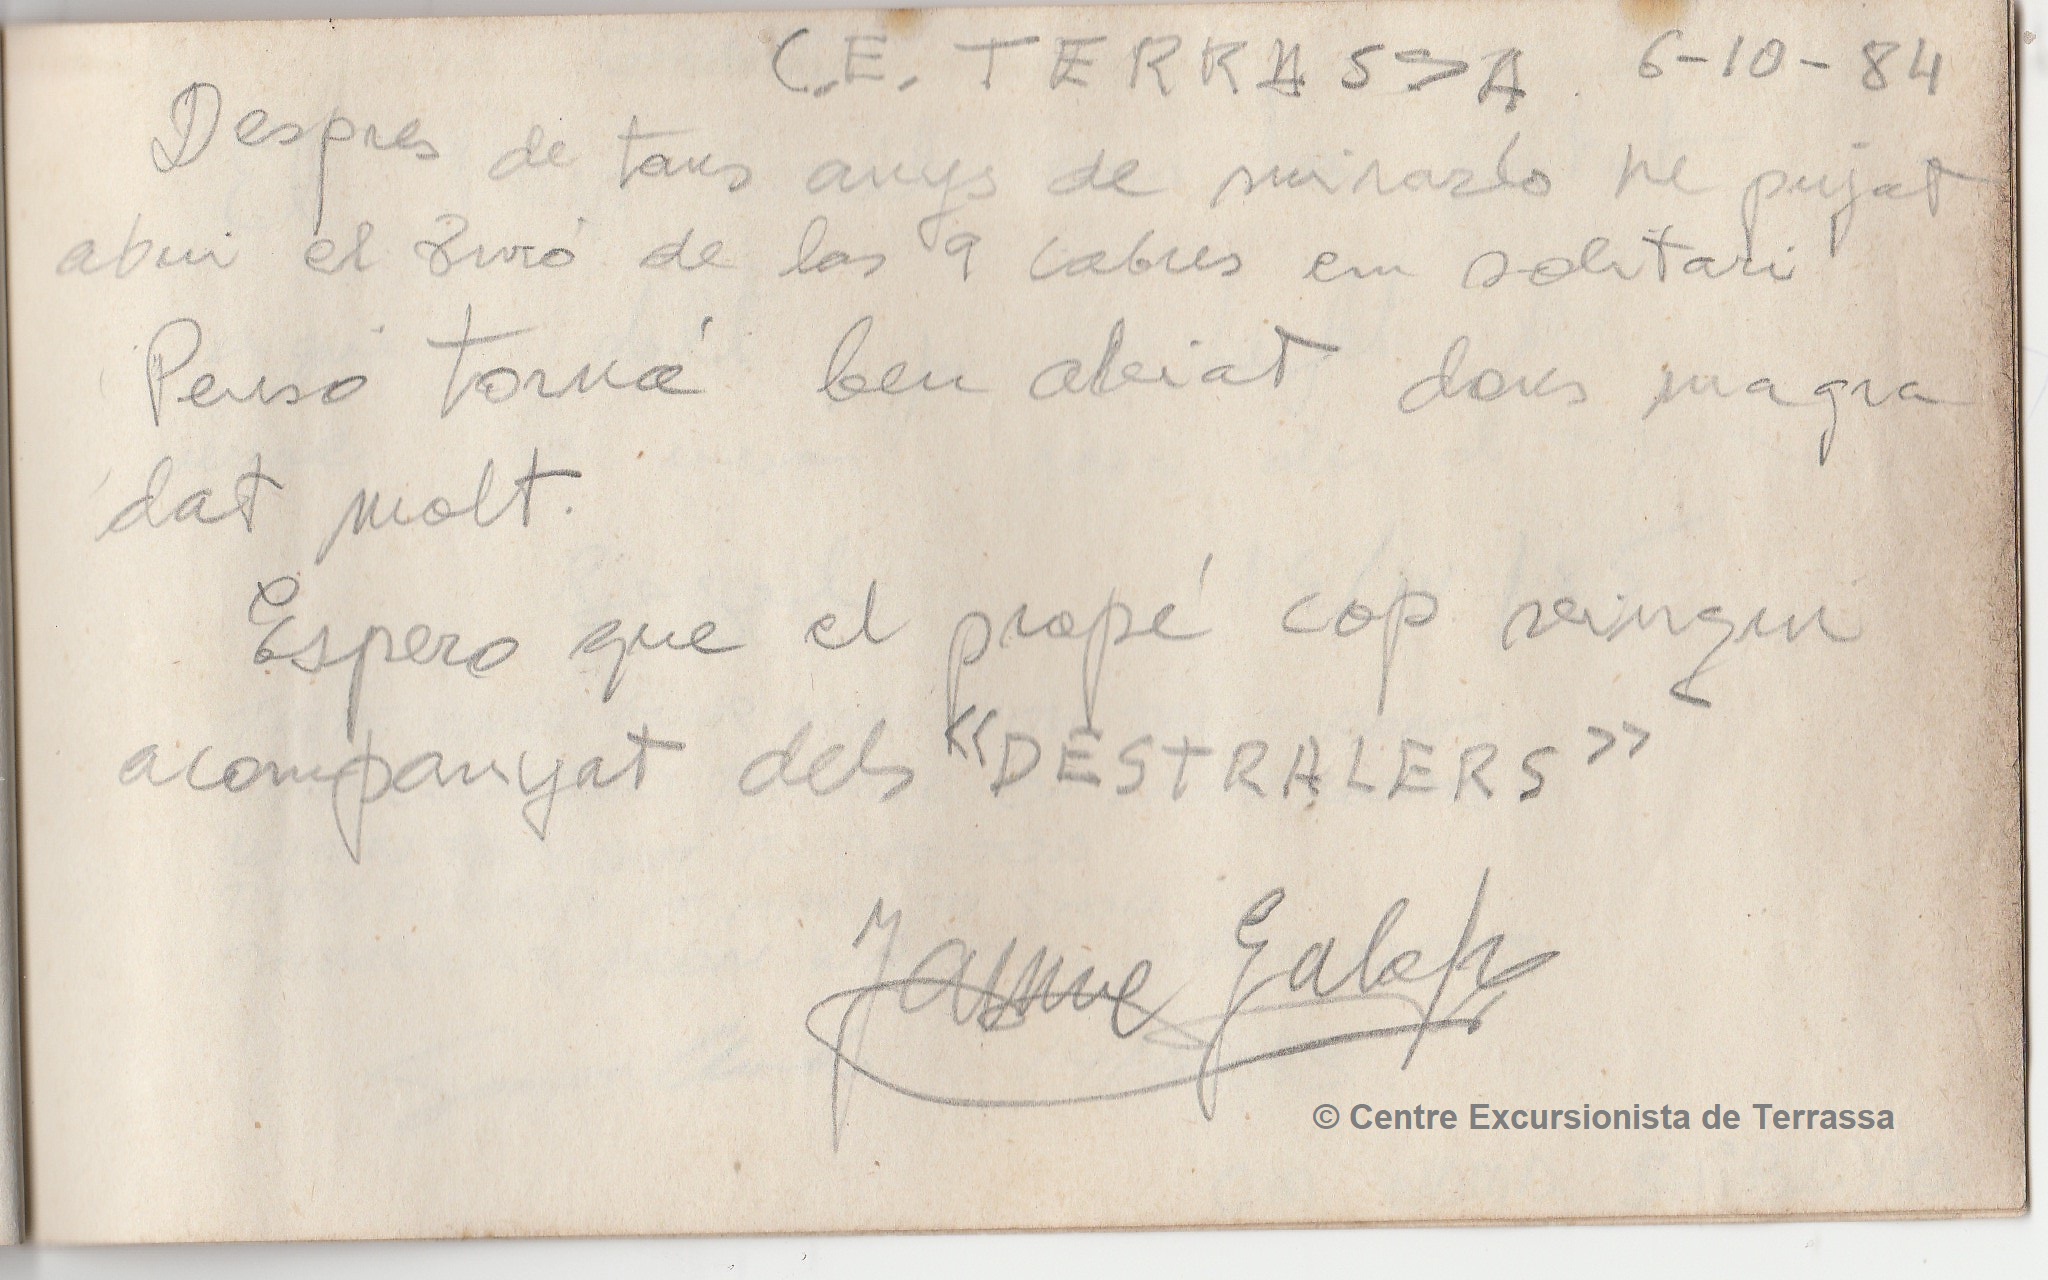 C.E. TERRASSA 6-10-84
Despres de tans anys de mirarlo he pujat
abui el de las 9 cabres em solitari
Penso torná ben abiat dons magra
dat molt.
Espero que el propé cop veingui
acompanyat dels "DESTRALERS"
Jaume
© Centre Excursionista de Terrassa